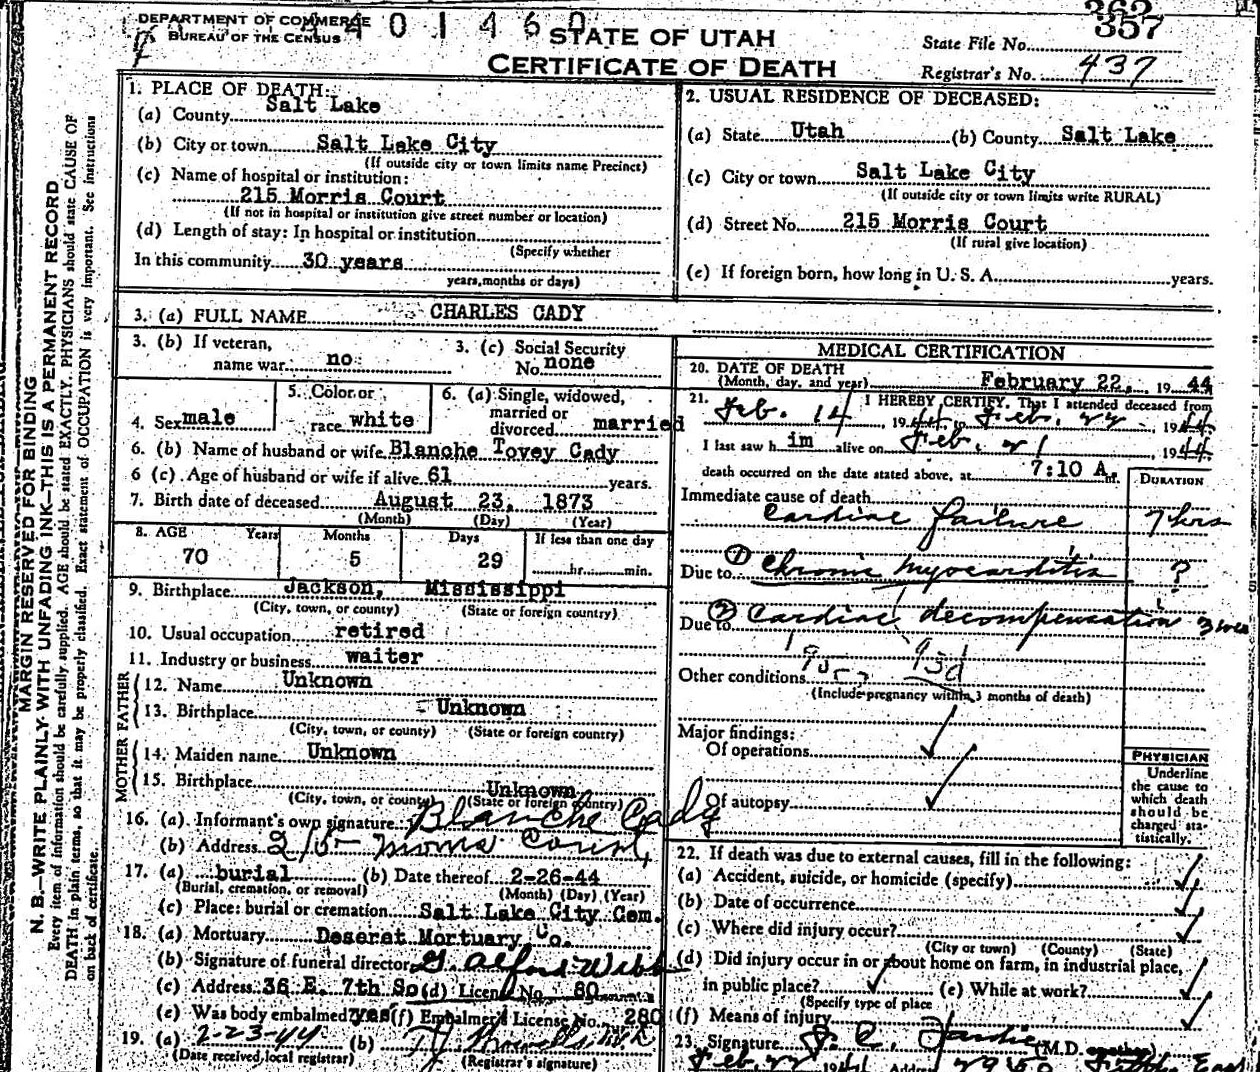 DEPARTMENT OF COMMERCE
BUREAU OF THE CENSUS
4 0 1 4 6 0
STATE OF UTAH
CERTIFICATE OF DEATH
362
357
State File No.
Registrar's No. 437
MARGIN RESERVED FOR BINDING
N. B.—WRITE PLAINLY WITH UNFADING INK—THIS IS A PERMANENT RECORD
Every item of information should be carefully supplied. AGE should be stated EXACTLY. PHYSICIANS should state CAUSE OF
DEATH in plain terms, so that it may be properly classified. Exact statement of OCCUPATION is very important. See instructions
on back of certificate.
1. PLACE OF DEATH:
(a) County Salt Lake
(b) City or town Salt Lake City
(If outside city or town limits name Precinct)
(c) Name of hospital or institution:
215 Morris Court
(If not in hospital or institution give street number or location)
(d) Length of stay: In hospital or institution
(Specify whether
In this community 30 years
years, months or days)
2. USUAL RESIDENCE OF DECEASED:
(a) State Utah (b) County Salt Lake
(c) City or town Salt Lake City
(If outside city or town limits write RURAL)
(d) Street No. 215 Morris Court
(If rural give location)
(e) If foreign born, how long in U. S. A. years.
3. (a) FULL NAME CHARLES CADY
3. (b) If veteran,
name war no
3. (c) Social Security
No. none
4. Sex male
5. Color or
race white
6. (a) Single, widowed,
married or
divorced married
6. (b) Name of husband or wife Blanche Tovey Cady
6 (c) Age of husband or wife if alive 61 years.
7. Birth date of deceased August 23, 1873
(Month) (Day) (Year)
8. AGE Years Months Days If less than one day
70 5 29 hr. min.
9. Birthplace Jackson, Mississippi
(City, town, or county) (State or foreign country)
10. Usual occupation retired
11. Industry or business waiter
FATHER
12. Name Unknown
13. Birthplace Unknown
(City, town, or county) (State or foreign country)
MOTHER
14. Maiden name Unknown
15. Birthplace Unknown
(City, town, or county) (State or foreign country)
16. (a) Informant's own signature Blanche Cady
(b) Address 215 Morris Court
17. (a) burial (b) Date thereof 2-26-44
(Burial, cremation, or removal) (Month) (Day) (Year)
(c) Place: burial or cremation Salt Lake City Cem.
18. (a) Mortuary Deseret Mortuary Co.
(b) Signature of funeral director G. Alford Webb
(c) Address 36 E. 7th So (d) License No. 80
(e) Was body embalmed? yes (f) Embalmer License No. 280
19. (a) 2-23-44 (b)
(Date received local registrar) (Registrar's signature)
MEDICAL CERTIFICATION
20. DATE OF DEATH
(Month, day, and year) February 22, 19 44
21. I HEREBY CERTIFY, That I attended deceased from
Feb. 14, 19 44 to Feb. 22 19 44
I last saw h im alive on Feb. 21 19 44
death occurred on the date stated above, at 7:10 A. m.
DURATION
Immediate cause of death
Cardiac failure 7 hrs
Due to ① Chronic myocarditis ?
Due to ② Cardiac decompensation
93d
Other conditions
(Include pregnancy within 3 months of death)
Major findings:
Of operations
Of autopsy
PHYSICIAN
Underline
the cause to
which death
should be
charged sta-
tistically.
22. If death was due to external causes, fill in the following:
(a) Accident, suicide, or homicide (specify)
(b) Date of occurrence
(c) Where did injury occur?
(City or town) (County) (State)
(d) Did injury occur in or about home on farm, in industrial place,
in public place? (e) While at work?
(Specify type of place
(f) Means of injury
23. Signature (M.D.
Feb. 22 1944 Address